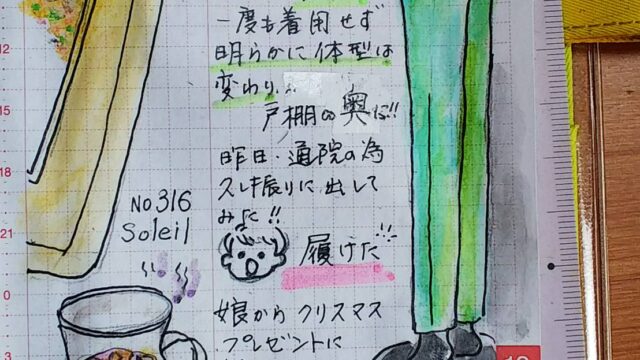 一度も着用せず
明らかに体型は
変わり..
戸棚の奥に!!
昨日・通院の為
久し振りに出して
みた!!
履けた
娘から クリスマス
プレゼントに
No316
Soleil
12
15
18
21
0
3